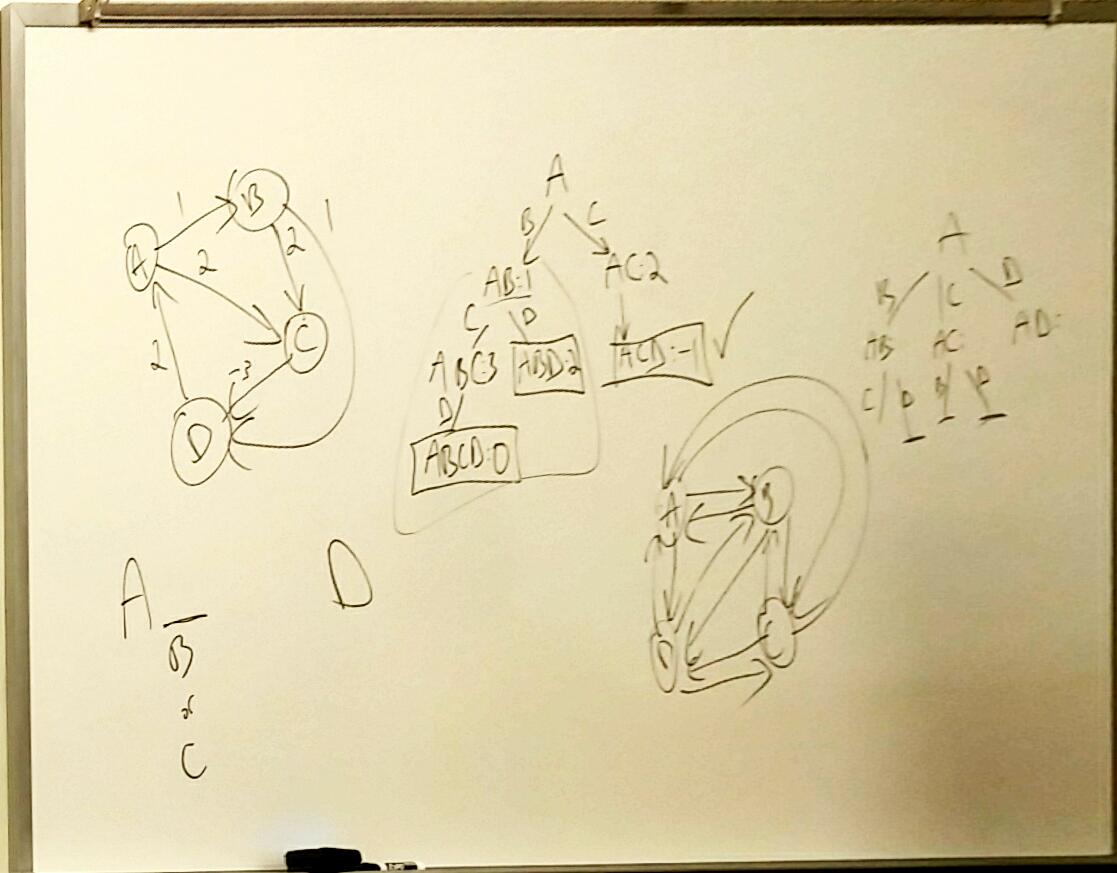 1
B
1
A
2
2
C
2
-3
D
A
B C
AB:1 AC:2
C D
ABC:3 ABD:2 ACD:-1 ✓
D
ABCD:0
A
B C D
AB AC AD:
C D B D
A B
D C
A _ D
B
or
C